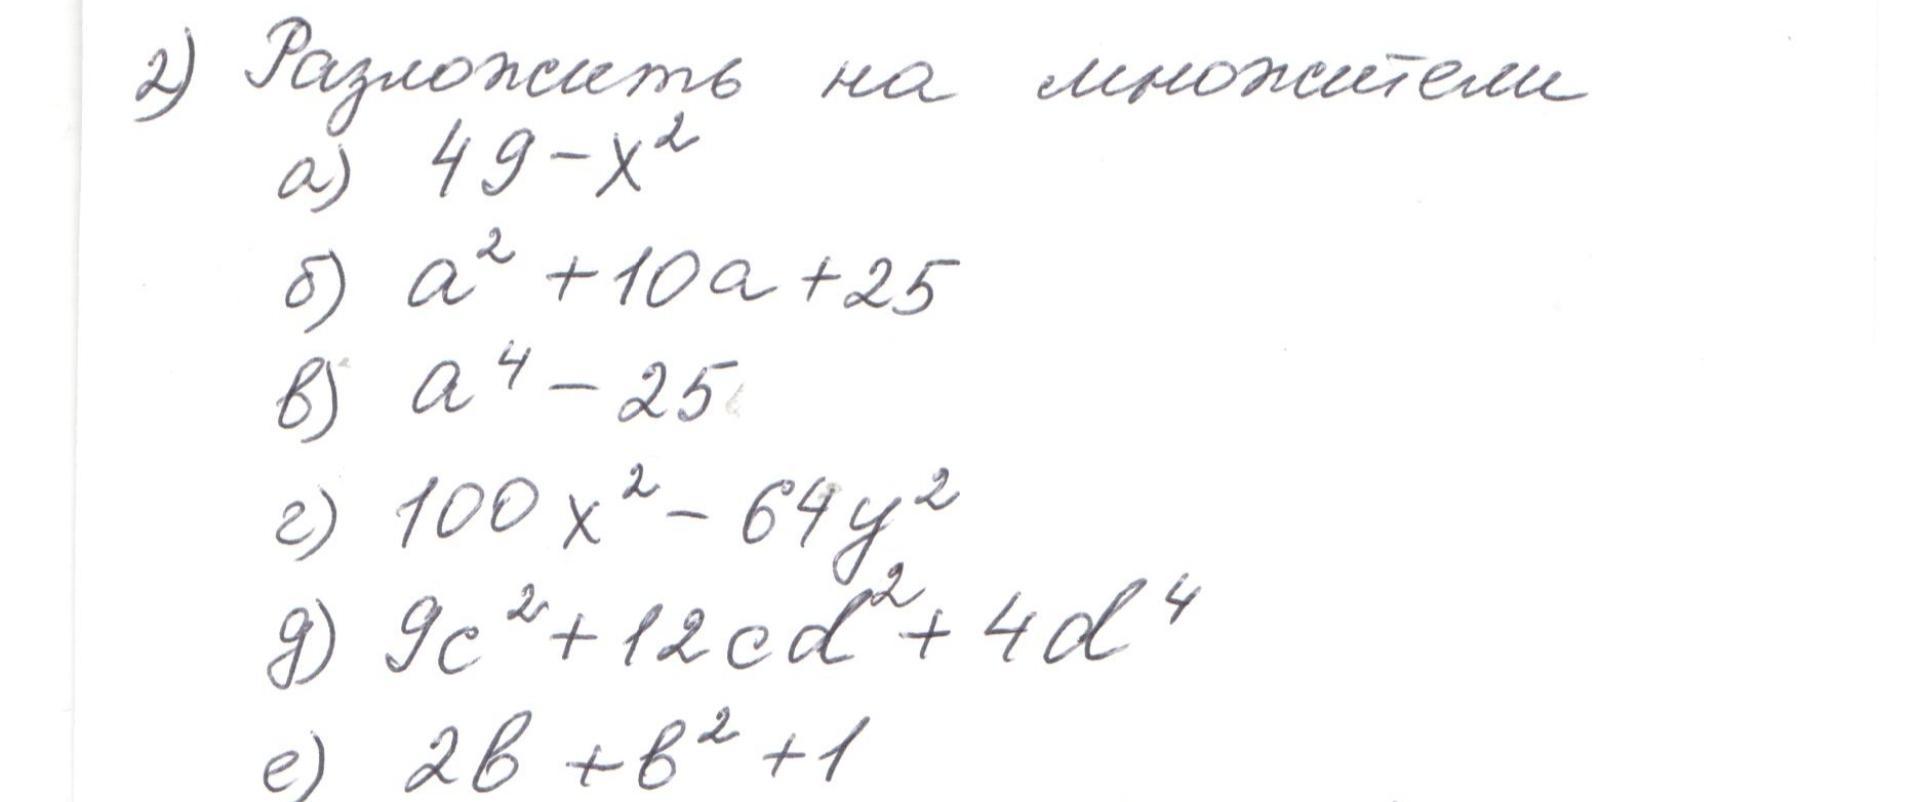 2) Разложить на множители
а) 49-x²
б) a² +10a+25
в) a⁴-25
г) 100x²-64y²
д) 9c²+12cd²+4d⁴
е) 2b+b²+1